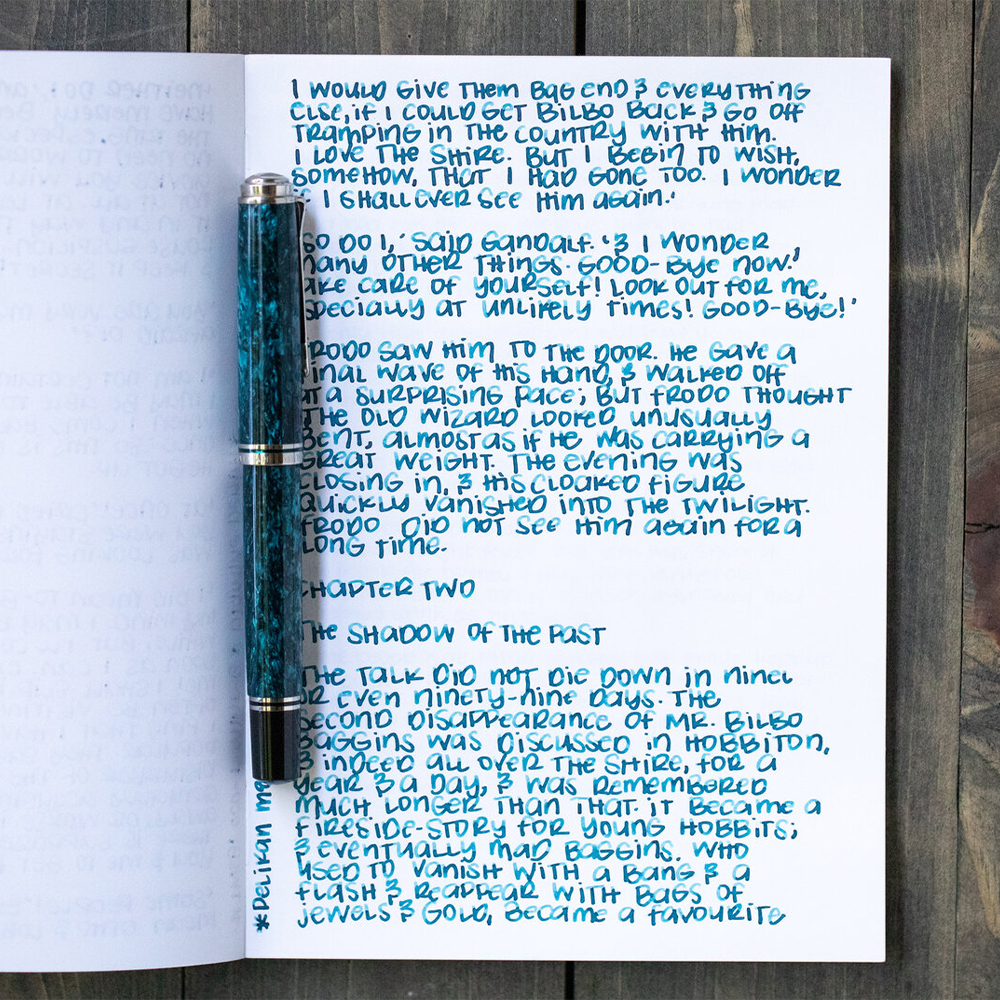 I WOULD GIVE THEM BAG END & EVERYTHING
ELSE, IF I COULD GET BILBO BACK & GO OFF
TRAMPING IN THE COUNTRY WITH HIM.
I LOVE THE SHIRE. BUT I BEGIN TO WISH,
SOMEHOW, THAT I HAD GONE TOO. I WONDER
IF I SHALL EVER SEE HIM AGAIN.'
SO DO I,' SAID GANDALF. '& I WONDER
MANY OTHER THINGS. GOOD-BYE NOW.'
TAKE CARE OF YOURSELF! LOOK OUT FOR ME,
ESPECIALLY AT UNLIKELY TIMES! GOOD-BYE!'
FRODO SAW HIM TO THE DOOR. HE GAVE A
FINAL WAVE OF HIS HAND, & WALKED OFF
AT A SURPRISING PACE; BUT FRODO THOUGHT
THE OLD WIZARD LOOKED UNUSUALLY
BENT, ALMOST AS IF HE WAS CARRYING A
GREAT WEIGHT. THE EVENING WAS
CLOSING IN, & HIS CLOAKED FIGURE
QUICKLY VANISHED INTO THE TWILIGHT.
FRODO DID NOT SEE HIM AGAIN FOR A
LONG TIME.
CHAPTER TWO
THE SHADOW OF THE PAST
THE TALK DID NOT DIE DOWN IN NINE
OR EVEN NINETY-NINE DAYS. THE
SECOND DISAPPEARANCE OF MR. BILBO
BAGGINS WAS DISCUSSED IN HOBBITON,
& INDEED ALL OVER THE SHIRE, FOR A
YEAR & A DAY, & WAS REMEMBERED
MUCH LONGER THAN THAT. IT BECAME A
FIRESIDE-STORY FOR YOUNG HOBBITS;
& EVENTUALLY MAD BAGGINS, WHO
USED TO VANISH WITH A BANG & A
FLASH & REAPPEAR WITH BAGS OF
JEWELS & GOLD, BECAME A FAVOURITE
*Delikan me